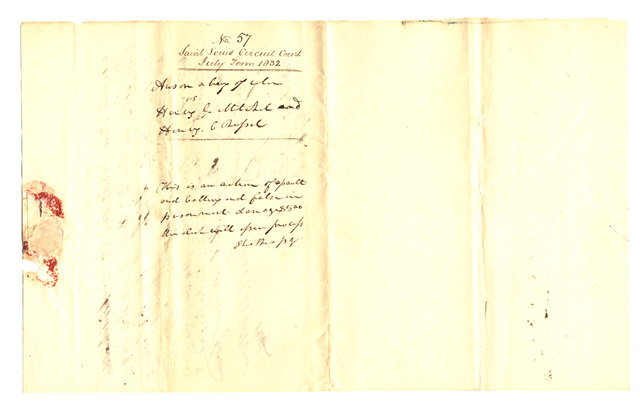 No. 57
Saint Louis Circuit Court
July Term 1832
Anson a boy of color
vs
Henry G Mitchel and
Henry. C Russel
This is an action of assault
and battery and false im
prisonment damages $500
the clerk will issue process
pq